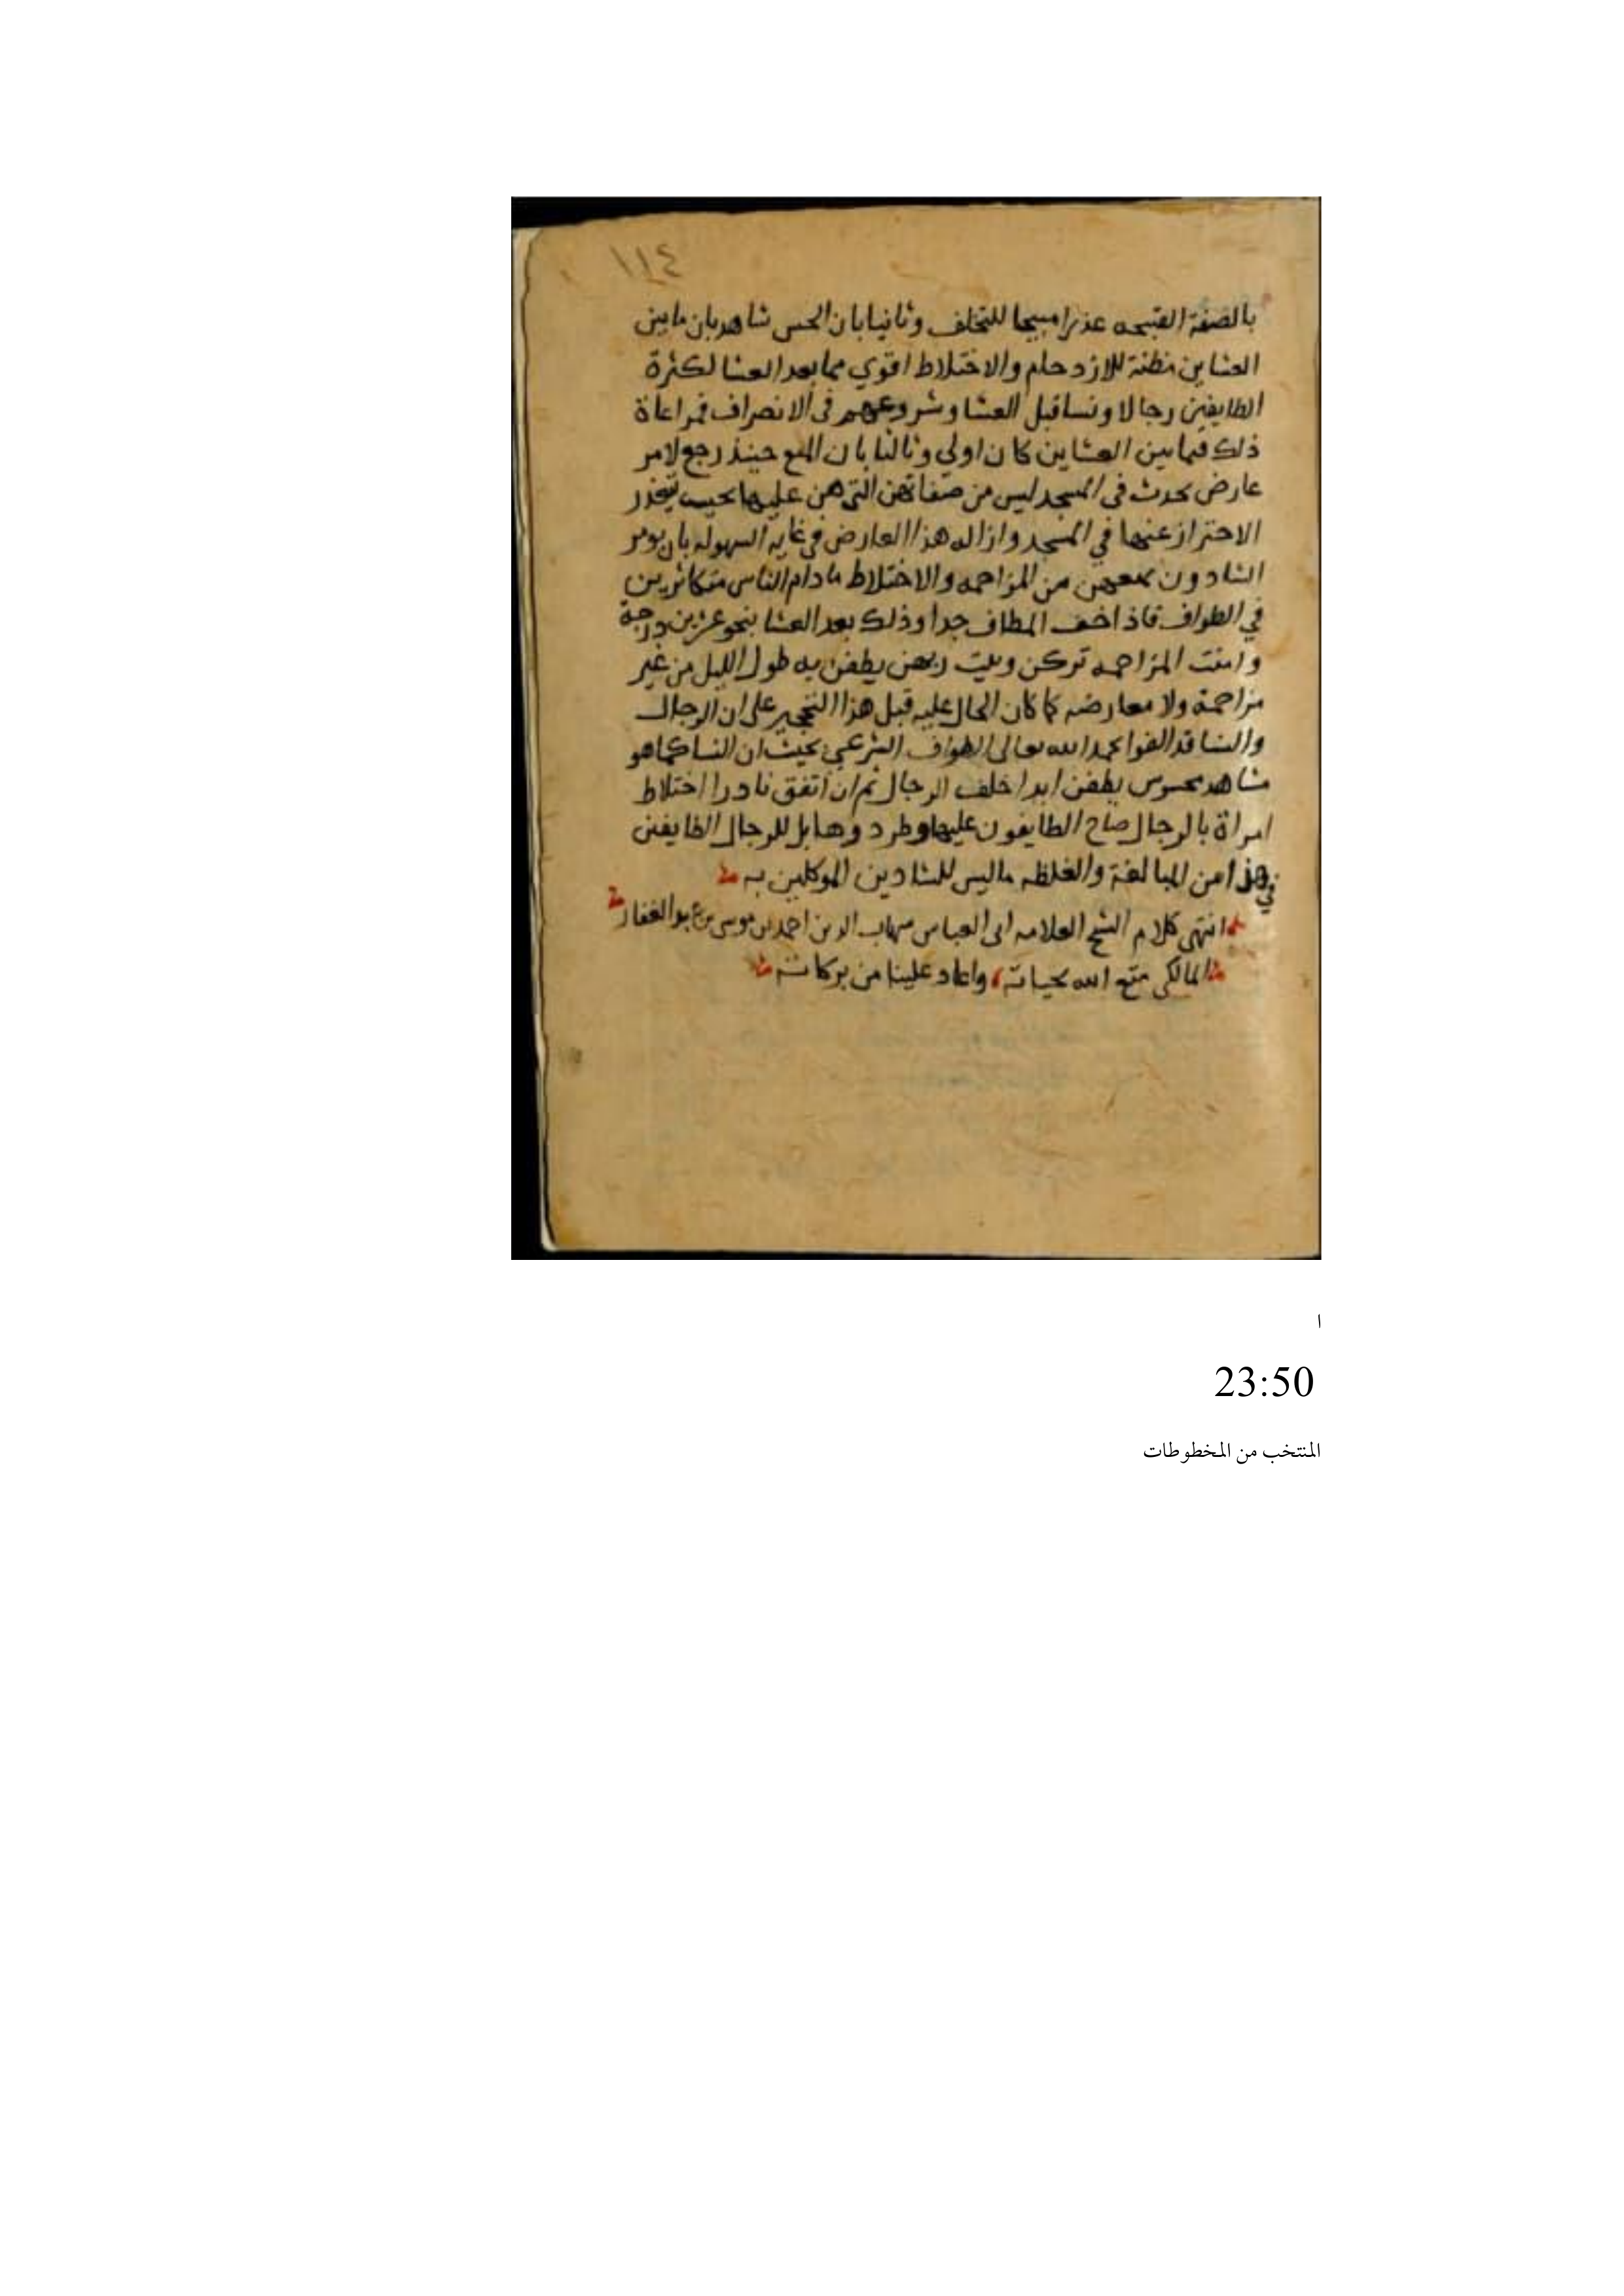 ١١٤
بالصفة القبيحه عذرا مبيحا للتخلف وثانيا بان الحس شاهد بان مابين
العشاين مظنة للازدحام والاختلاط اقوي مما بعد العشا لكثرة
الطايفين رجالا ونسا قبل العشا وشروعهم في الانصراف فمراعاة
ذلك فيما بين العشاين كان اولي وثالثا بان المنع حينذ رجع لامر
عارض يحدث في المسجد ليس من صفاتهن التي هن عليها بحيث يتعذر
الاحتراز عنها في المسجد وازاله هذا العارض في غايه السهوله بان يومر
الشادون بمنعهن من المزاحمه والاختلاط مادام الناس متكاثرين
في الطواف فاذا خف المطاف جدا وذلك بعد العشا بنحو عشرين درجة
وامنت المزاحمه تركن وبيت ربهن يطفن به طول الليل من غير
مزاحمة ولا معارضه كما كان الحال عليه قبل هذا التحجير على ان الرجال
والنسا قد الفوا بحمد الله تعالى الطواف الشرعي بحيث ان النسا كما هو
مشاهد محسوس يطفن ابدا خلف الرجال ثم ان اتفق نادرا اختلاط
امراة بالرجال صاح الطايفون عليها وطردوها بل للرجال الطايفين
في هذا من المبالغة والغلظه ماليس للشادين الموكلين به
انتهى كلام الشيخ العلامه ابى العباس شهاب الدين احمد بن موسى بن عبد الغفار
المالكى متع الله بحياته واعاد علينا من بركاته
ا
23:50
المنتخب من المخطوطات